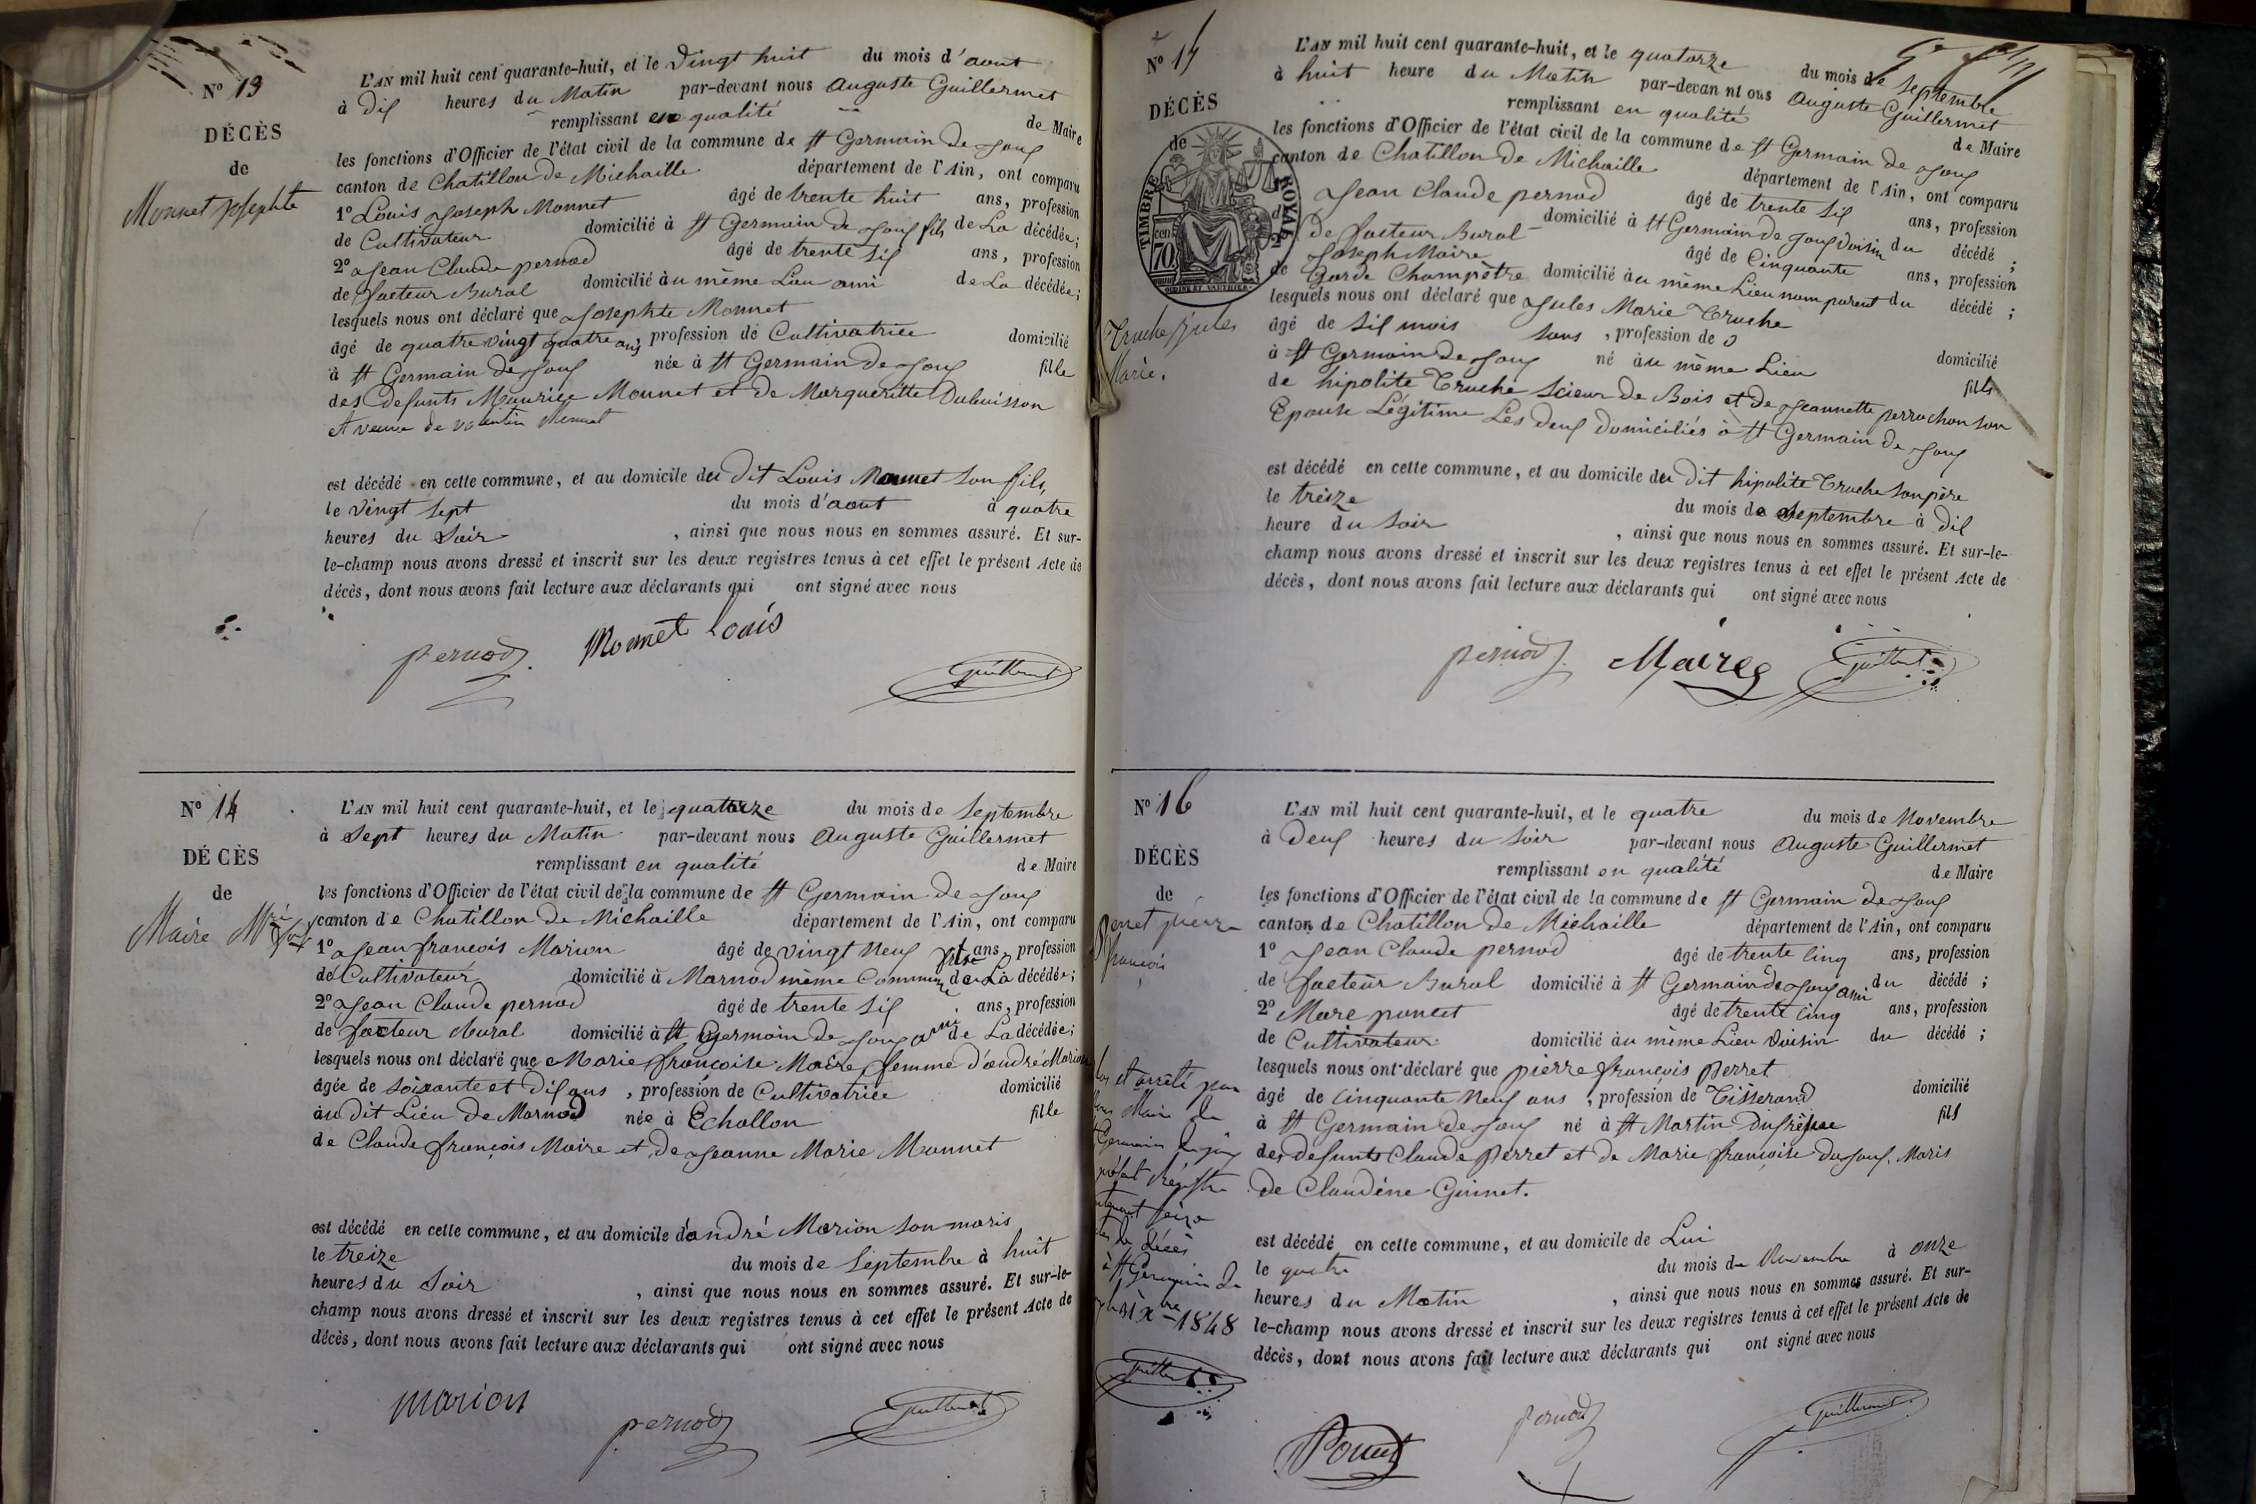 N° 13
DÉCÈS
de
Monnet Josephte
L'AN mil huit cent quarante-huit, et le vingt huit du mois d'aout
à dix heures du Matin par-devant nous Auguste Guillermet
remplissant en qualité de Maire
les fonctions d'Officier de l'état civil de la commune de St Germain de Joux
canton de Chatillon de Michaille département de l'Ain, ont comparu
1° Louis Joseph Monnet âgé de trente huit ans, profession
de Cultivateur domicilié à St Germain de Joux fils de La décédée;
2° Jean Claude pernod âgé de trente six ans, profession
de facteur Rural domicilié au même Lieu ami de La décédée;
lesquels nous ont déclaré que Josephte Monnet
âgé de quatre vingt quatre ans, profession de Cultivatrice domicilié
à St Germain de Joux née à St Germain de Joux fille
des Defunts Maurice Monnet et de Margueritte Dubuisson
et veuve de valentin Monnet
est décédé en cette commune, et au domicile du dit Louis Monnet son fils,
le vingt sept du mois d'aout à quatre
heures du Soir, ainsi que nous nous en sommes assuré. Et sur-
le-champ nous avons dressé et inscrit sur les deux registres tenus à cet effet le présent Acte de
décès, dont nous avons fait lecture aux déclarants qui ont signé avec nous
pernod Monnet Louis Guillermet
N° 14
DÉCÈS
de
Maire Mrie
L'AN mil huit cent quarante-huit, et le quatorze du mois de Septembre
à Sept heures du Matin par-devant nous Auguste Guillermet
remplissant en qualité de Maire
les fonctions d'Officier de l'état civil de la commune de St Germain de Joux
canton de Chatillon de Michaille département de l'Ain, ont comparu
1° Jean françois Marion âgé de vingt neuf ans, profession
de Cultivateur domicilié à Marnod même Commune fils de La décédée;
2° Jean Claude pernod âgé de trente six ans, profession
de facteur Rural domicilié à St Germain de Joux ami de La décédée;
lesquels nous ont déclaré que Marie françoise Maire femme d'andré Marion
âgée de soixante et dix ans, profession de Cultivatrice domicilié
au dit Lieu de Marnod née à Echallon fille
de Claude françois Maire et de Jeanne Marie Monnet
est décédé en cette commune, et au domicile d'andré Marion son maris
le treize du mois de Septembre à huit
heures du Soir, ainsi que nous nous en sommes assuré. Et sur-le-
champ nous avons dressé et inscrit sur les deux registres tenus à cet effet le présent Acte de
décès, dont nous avons fait lecture aux déclarants qui ont signé avec nous
marion pernod Guillermet
N° 15
DÉCÈS
de
TIMBRE ROYAL
70 cen
Truche Jules
Marie.
L'AN mil huit cent quarante-huit, et le quatorze du mois de Septembre
à huit heure du Matin par-devan nt ous Auguste Guillermet
remplissant en qualité de Maire
les fonctions d'Officier de l'état civil de la commune de St Germain de Joux
canton de Chatillon de Michaille département de l'Ain, ont comparu
Jean Claude pernod âgé de trente six ans, profession
de facteur Rural domicilié à St Germain de Joux voisin du décédé;
2° Joseph Maire âgé de Cinquante ans, profession
de Garde Champêtre domicilié au même Lieu nom parent du décédé;
lesquels nous ont déclaré que Jules Marie Truche
âgé de six mois sans, profession de domicilié
à St Germain de Joux né au même Lieu fils
de hipolite Truche Scieur de Bois et de Jeannette perrochon son
Epouse Légitime Les deux domiciliés à St Germain de Joux
est décédé en cette commune, et au domicile du dit hipolite Truche son père
le treize du mois de Septembre à dix
heure du Soir, ainsi que nous nous en sommes assuré. Et sur-le-
champ nous avons dressé et inscrit sur les deux registres tenus à cet effet le présent Acte de
décès, dont nous avons fait lecture aux déclarants qui ont signé avec nous
pernod Maire Guillermet
N° 16
DÉCÈS
de
Perret pierre
françois
L'AN mil huit cent quarante-huit, et le quatre du mois de Novembre
à deux heures du Soir par-devant nous Auguste Guillermet
remplissant en qualité de Maire
les fonctions d'Officier de l'état civil de la commune de St Germain de Joux
canton de Chatillon de Michaille département de l'Ain, ont comparu
1° Jean Claude pernod âgé de trente cinq ans, profession
de facteur Rural domicilié à St Germain de Joux ami du décédé;
2° Marc poncet âgé de trente cinq ans, profession
de Cultivateur domicilié au même Lieu voisin du décédé;
lesquels nous ont déclaré que pierre françois perret
âgé de cinquante neuf ans, profession de Tisserand domicilié
à St Germain de Joux né à St Martin du frêne fils
des défunts Claude perret et de Marie françoise Dujoux. Maris
de Claudéne Goinnet.
est décédé en cette commune, et au domicile de Lui
le quatre du mois de Novembre à onze
heures du Matin, ainsi que nous nous en sommes assuré. Et sur-
le-champ nous avons dressé et inscrit sur les deux registres tenus à cet effet le présent Acte de
décès, dont nous avons fait lecture aux déclarants qui ont signé avec nous
et arrêté par
Maire de
Germain de Joux
Régistre
seize
de décès
à St Germain de
31 Xbre 1848
Guillermet
pernod Guillermet